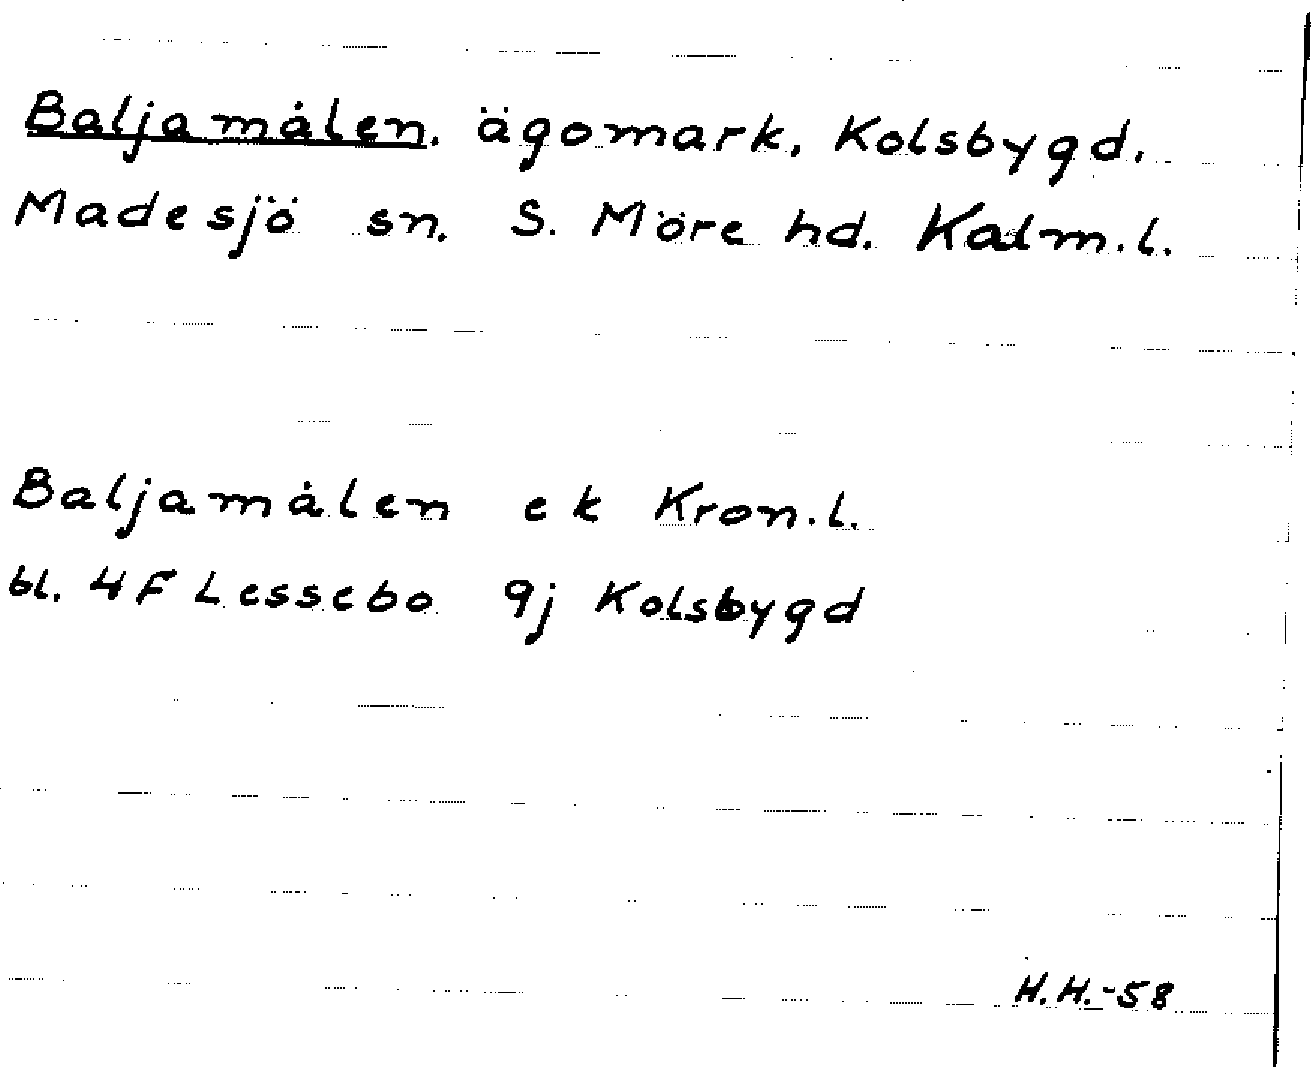 Baljamålen. ägomark, Kolsbygd.
Madesjö sn. S. Möre hd. Kalm.l.
Baljamålen ek Kron.l.
bl. 4F Lessebo 9j Kolsbygd
H.H.-58